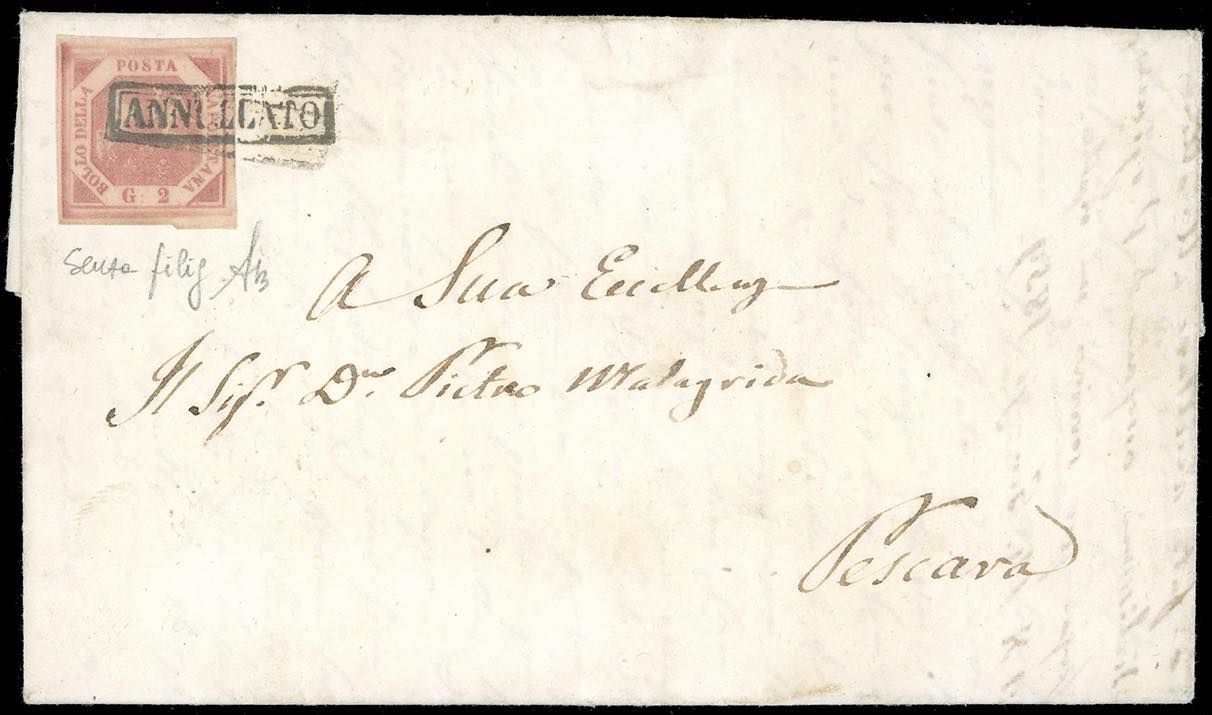 POSTA
BOLLO DELLA
NAPOLETANA
G. 2
ANNULLATO
senza filig
A Sua Eccellenza
Il Sigr. Dn. Pietro Malagrida
Pescara